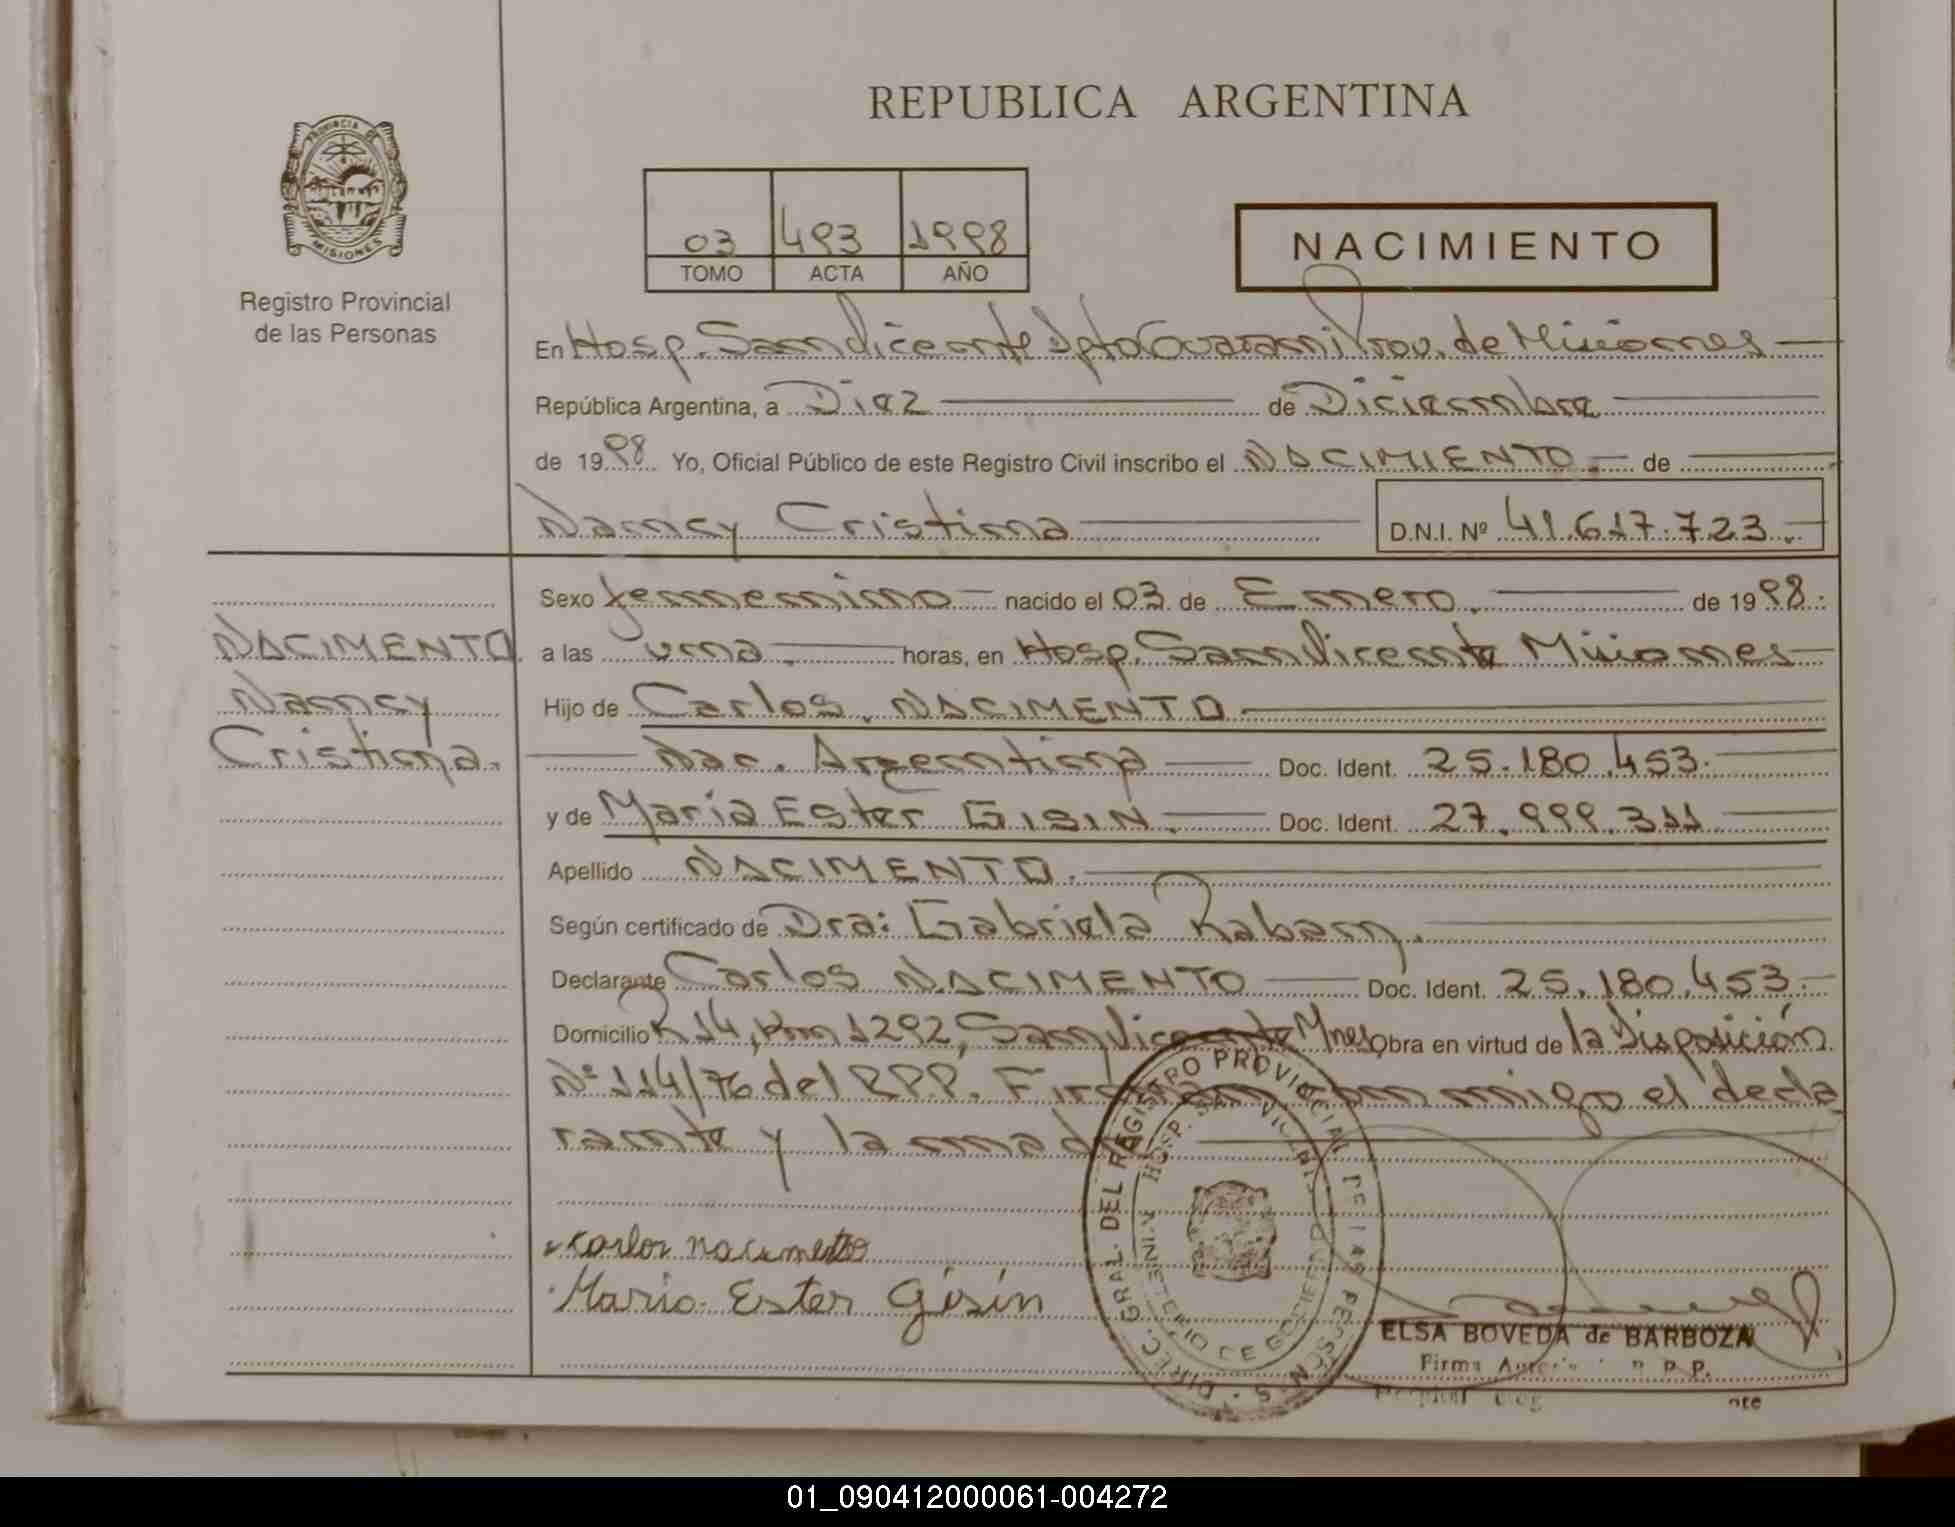 REPUBLICA ARGENTINA
PROVINCIA DE
MISIONES
Registro Provincial
de las Personas
03 493 1998
TOMO ACTA AÑO
NACIMIENTO
En Hosp. San Vicente Dpto Guaraní Prov. de Misiones
República Argentina, a Diez de Diciembre
de 1998 Yo, Oficial Público de este Registro Civil inscribo el NACIMIENTO.- de
Nancy Cristina D.N.I. Nº 41.617.723.-
Sexo femenino nacido el 03 de Enero. de 1998.
NACIMENTO a las una. horas, en Hosp. San Vicente Misiones
Nancy Hijo de Carlos. NACIMENTO
Cristina. Nac. Argentina Doc. Ident. 25.180.453.
y de Maria Ester GISIN. Doc. Ident. 27.999.311
Apellido NACIMENTO.
Según certificado de Dra: Gabriela Raban.
Declarante Carlos NACIMENTO Doc. Ident. 25.180.453.
Domicilio R 14, Km 1292, San Vicente Mnes Obra en virtud de la Disposición
Nº 114/76 del R.P.P. Firman conmigo el decla
rante y la madre
Carlos nacimento
Maria Ester Gisin
DIREC. GRAL. DEL REGISTRO PROVINCIAL DE LAS PERSONAS
HOSP. SAN VICENTE
MINISTERIO DE GOBIERNO
ELSA BOVEDA de BARBOZA
Firma R.P.P.
01_090412000061-004272